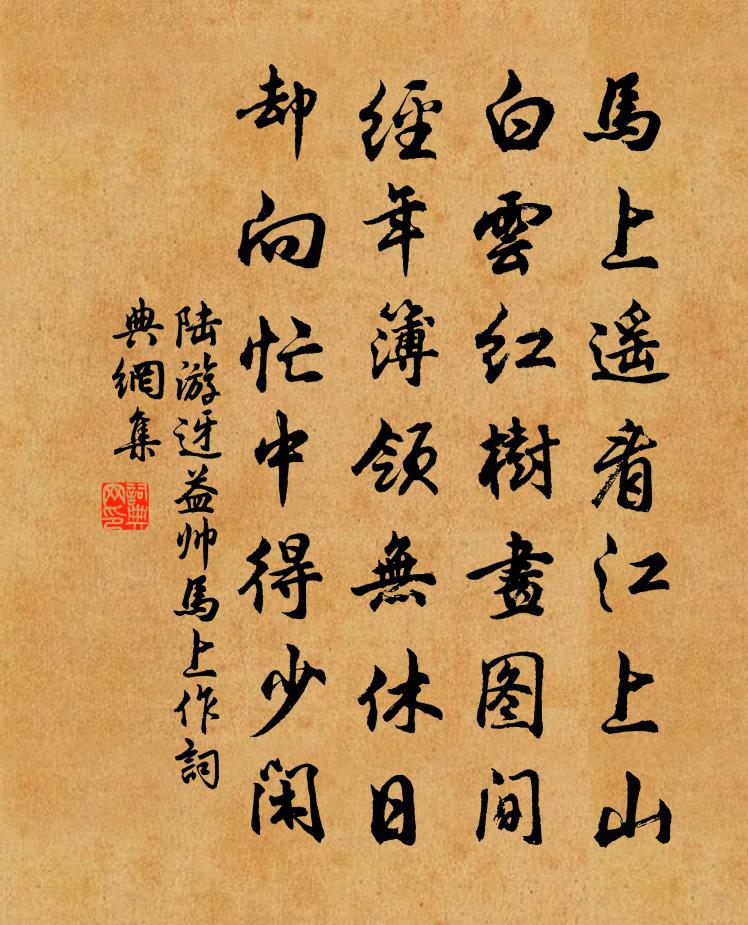 馬上遥看江上山
白雲紅樹畫图間
經年簿領無休日
却向忙中得少閑
陆游迓益帅馬上作詞
典網集
詞典
网印